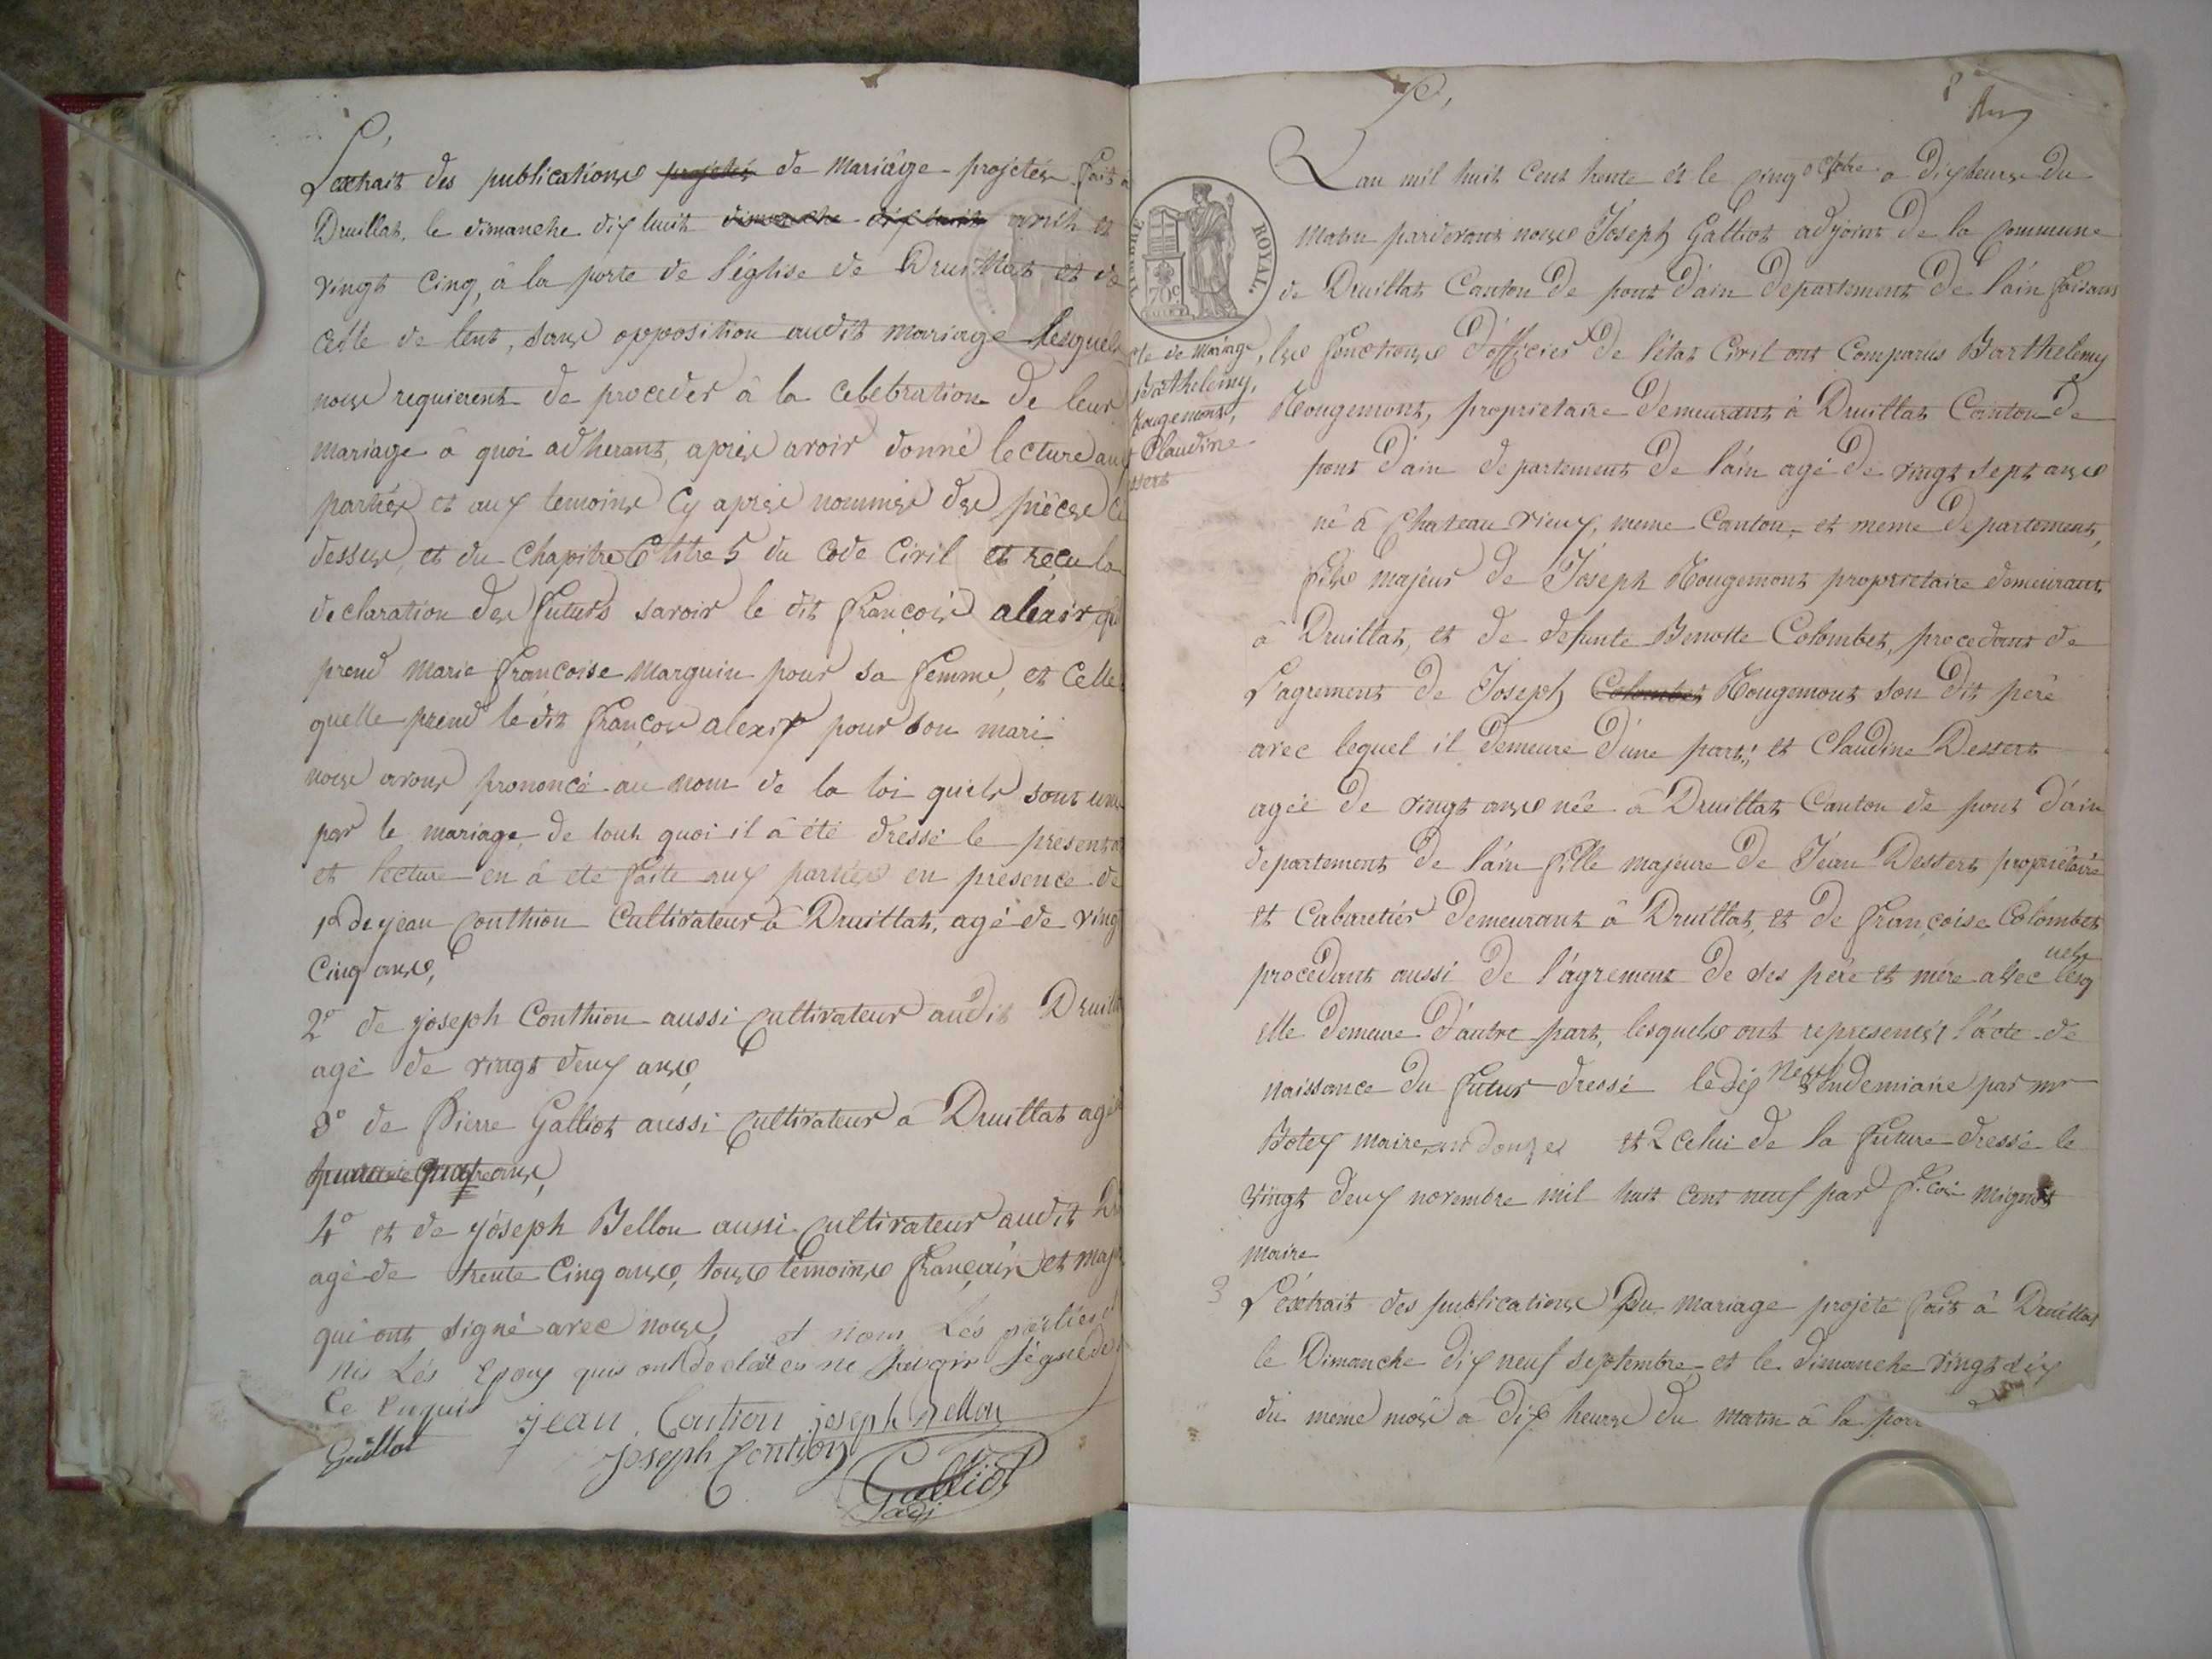 L'extrait des publications projetés de mariage projetés fait a
Druillat, le dimanche dix huit dimanche dix huit avril et
vingt cinq, à la porte de l'église de Druillat et de
celle de lent, sans opposition audit mariage lesquels
nous requierent de proceder à la celebration de leur
mariage à quoi adherant, après avoir donné lecture aux
parties et aux temoins cy après nommés des pièces ci
dessus, et du chapitre 6 titre 5 du code Civil et reçu la
declaration des futurs savoir le dit françois alexis qu'il
prend marie françoise Marguin pour sa femme, et celle
quelle prend le dit françois alexis pour son mari
nous avons prononcé au nom de la loi quils sont unis
par le mariage, de tout quoi il à été dressé le present
et lecture en à eté faite aux parties en présence de
1º de jean Conthion Cultivateur à Druillat, agé de vingt
cinq ans,
2º de joseph Conthion aussi cultivateur audit Druillat
agé de vingt deux ans,
3º de Pierre Galliot aussi cultivateur à Druillat agé
quatre ans,
4º et de joseph Bellon aussi cultivateur audit Dru
agé de trente cinq ans, tous temoins français et maj
qui ont signé avec nous, et nom Lés parties
nis Lés Epoux quis ont declaté ne savoir signé de
ce enquis
jean Contion joseph Bellon
Guillot
Joseph Contion
Galliot
adj
8
L'an mil huit cent trente et le cinq octobre a dix heures du
matin pardevant nous Joseph Galliot adjoint de la commune
de Druillat Canton de pont d'ain departement de l'ain faisant
les fonctions d'officier de l'état Civil ont comparus Barthelemy
Rougemont, proprietaire demeurant à Druillat Canton de
pont d'ain departement de l'ain agé de vingt sept ans
né à Chateau vieux, meme Canton, et meme departement,
fils majeur de Joseph Rougemont proprietaire demeurant
à Druillat, et de defunte Benoite Colombet, procedant de
l'agrement de Joseph Colombet Rougemont son dit père
avec lequel il demeure d'une part; et Claudine Dessert
agée de vingt ans née à Druillat Canton de pont d'ain
departement de l'ain fille majeure de Jean Dessert propriétaire
et Cabaretier demeurant à Druillat, et de françoise Colombet
procedant aussi de l'agrement de ses père et mère avec lesq
uels
elle demeure d'autre part, lesquels ont representés l'acte de
naissance du futur dressé le dix neuf vendemiaire par mr
Botex maire, an douze et 2 celui de la future dressé le
vingt deux novembre mil huit cent neuf par f.cois mignot
maire
3 L'extrait des publications du mariage projeté fait à Druillat
le Dimanche dix neuf septembre, et le dimanche vingt six
du meme mois a dix heures du matin à la por
TIMBRE ROYAL.
70c
cte de mariage,
Barthelemy,
Rougemont,
t Claudine
ssert